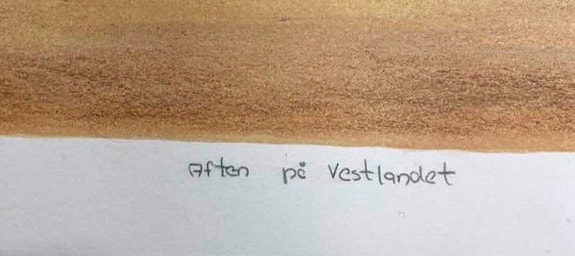 Aften på Vestlandet